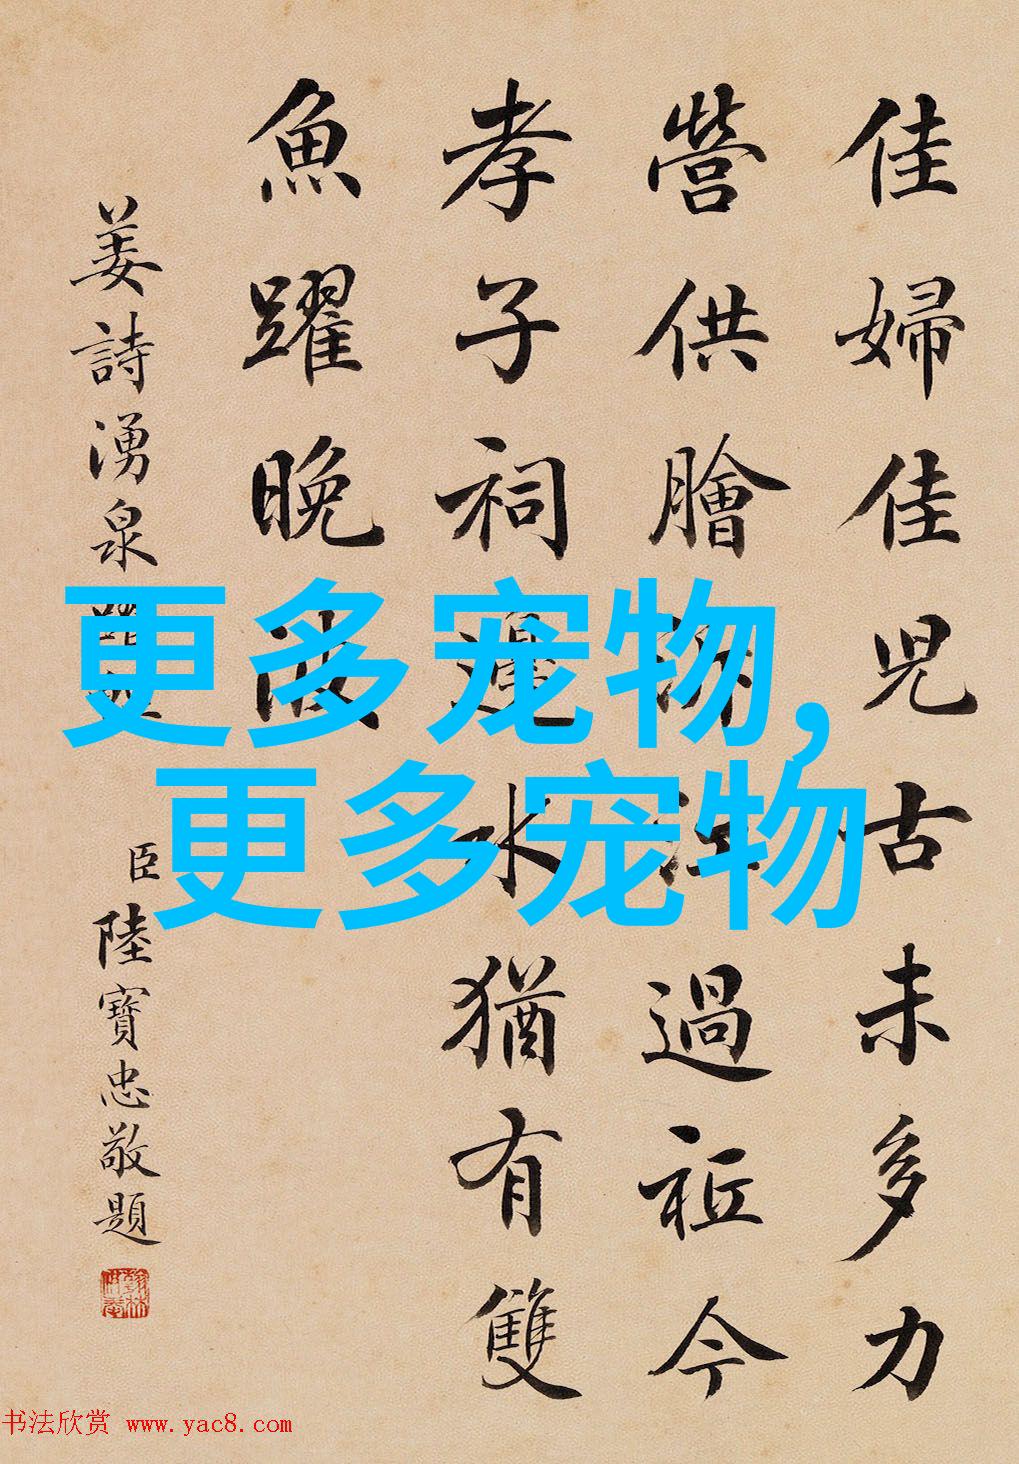 佳婦佳兒古未多力
營供膾泝江過祉今
孝子祠邊水猶有雙
魚躍晚波
姜詩湧泉躍鯉
臣陸寶忠敬題
更多宠物,
更多宠物
书法欣赏 www.yac8.com